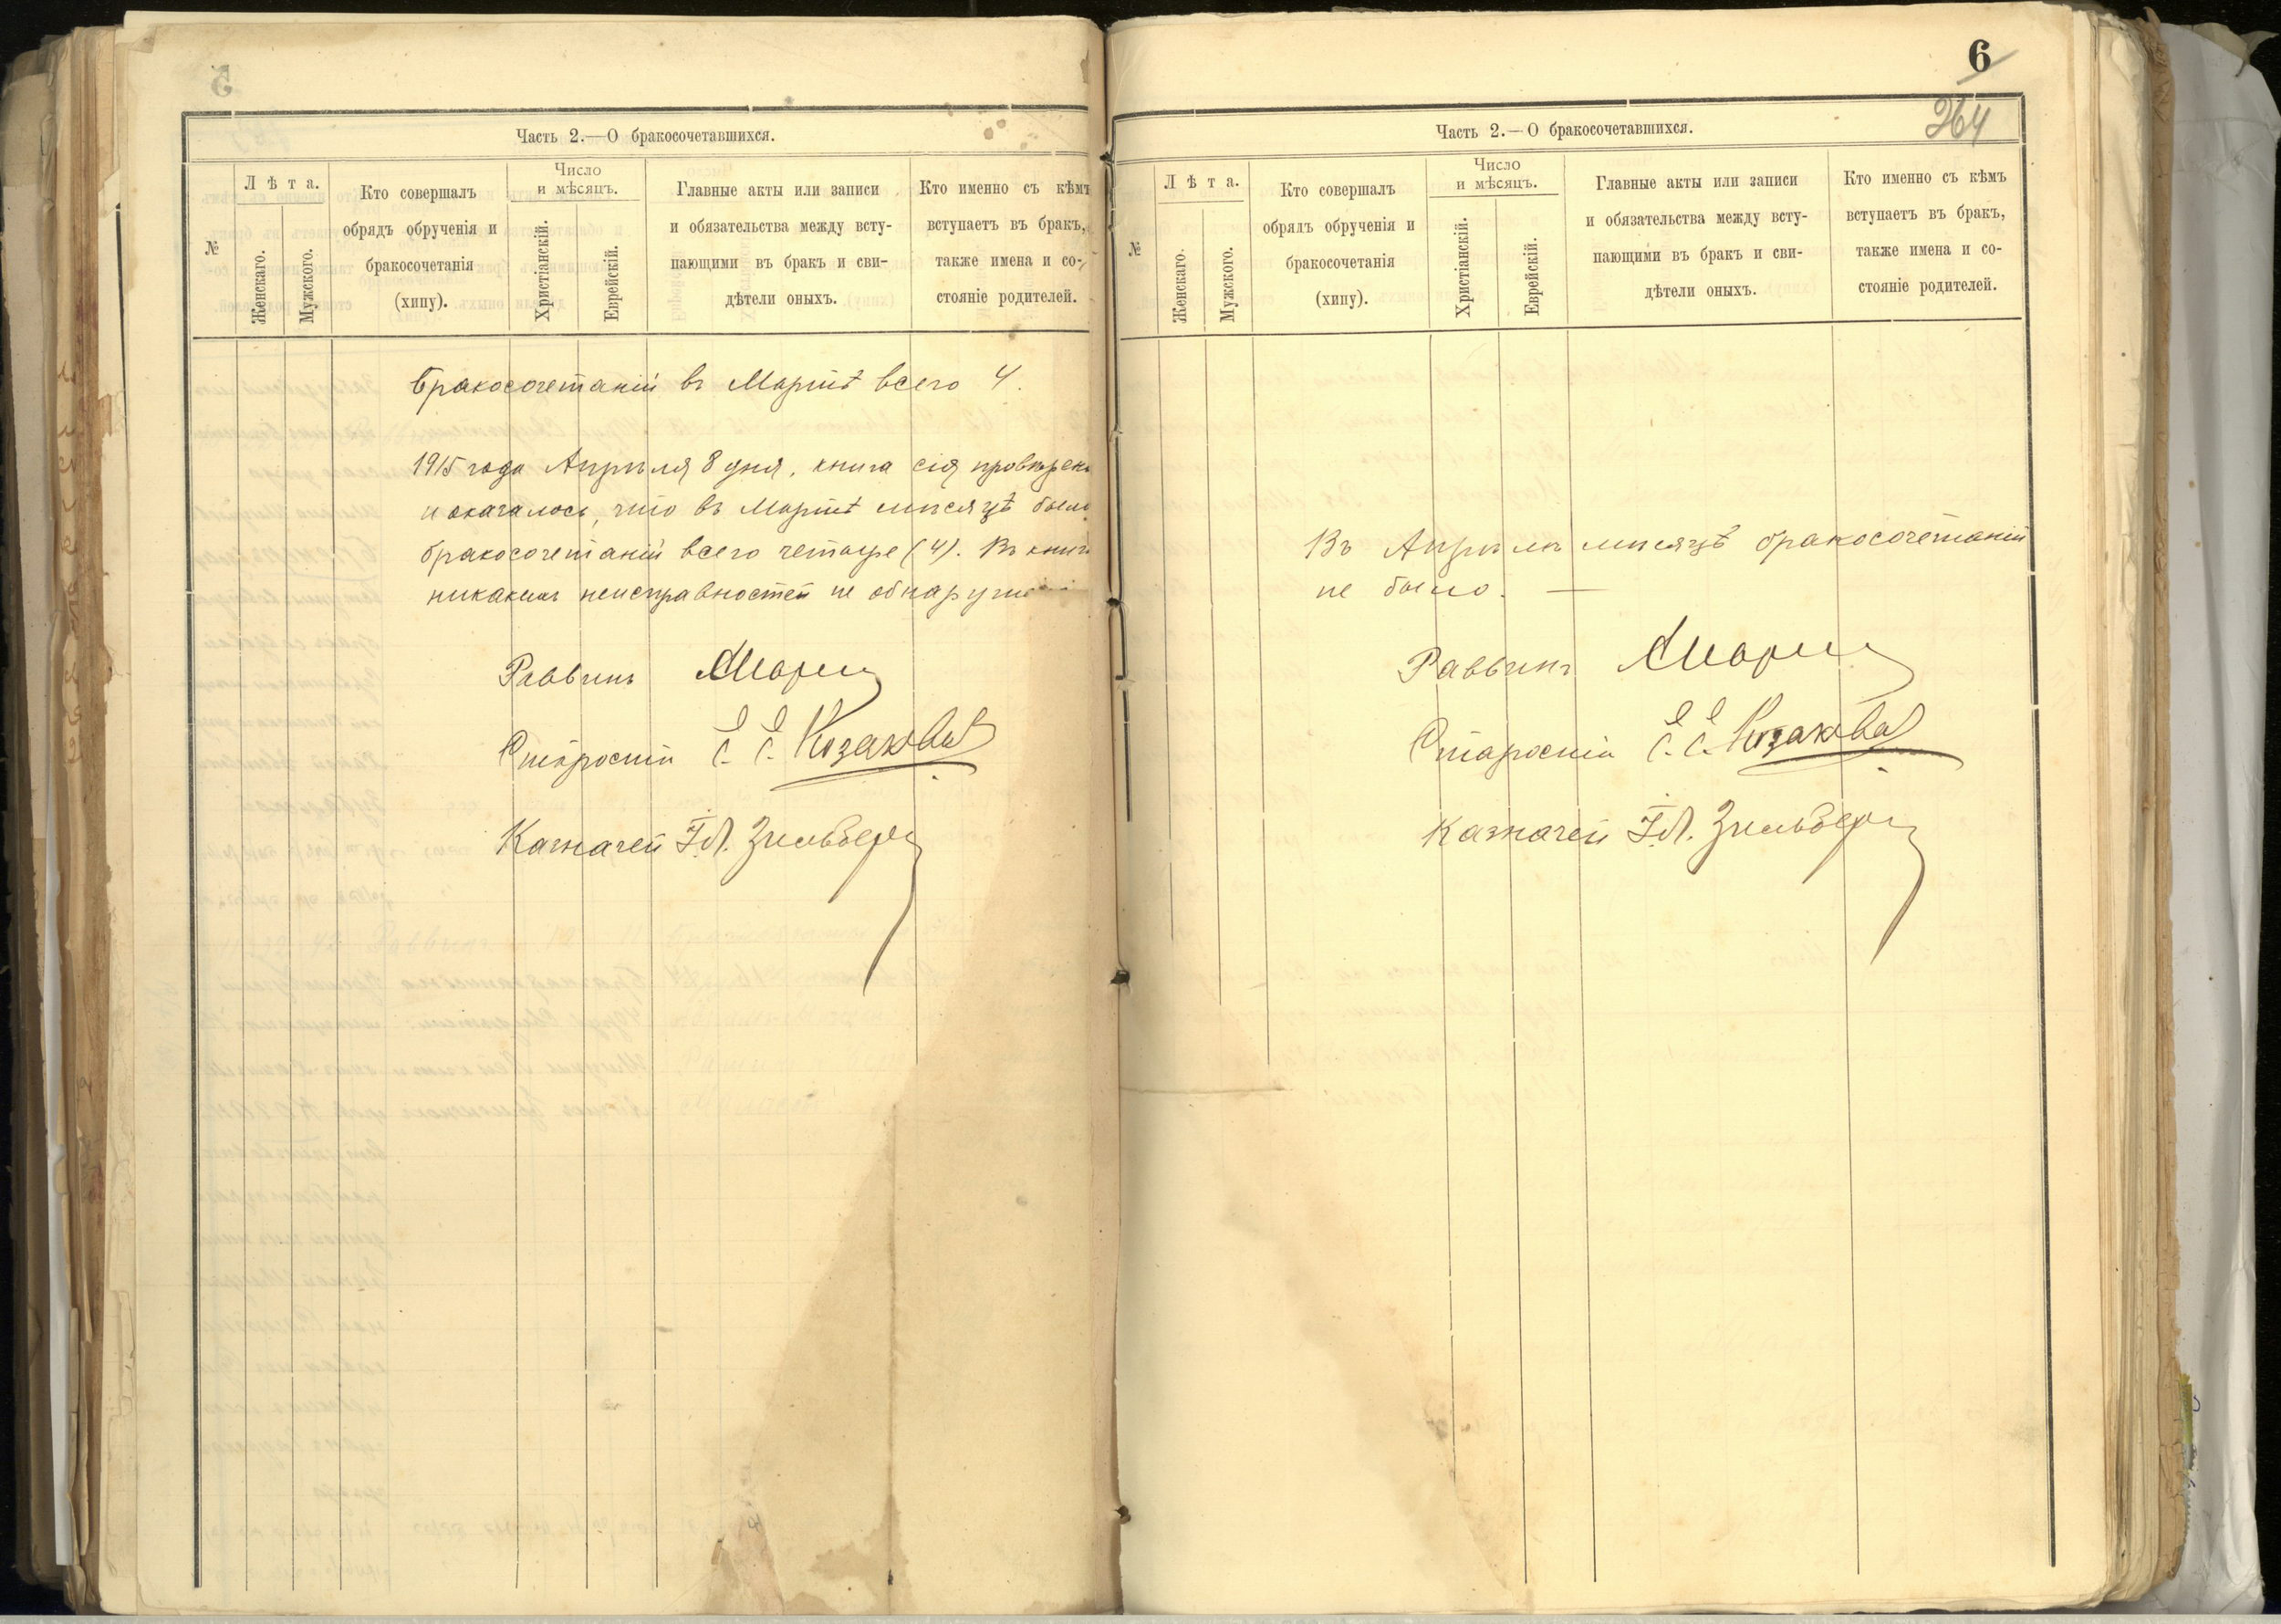 Часть 2.—О бракосочетавшихся.
№
Лѣта.
Женскаго.
Мужского.
Кто совершалъ
обрядъ обрученія и
бракосочетанія
(хипу).
Число
и мѣсяцъ.
Христіанскій.
Еврейскій.
Главные акты или записи
и обязательства между всту-
пающими въ бракъ и сви-
дѣтели оныхъ.
Кто именно съ кѣмъ
вступаетъ въ бракъ,
также имена и со-
стояніе родителей.
Бракосочетаній въ Мартѣ всего 4.
1915 года Апрѣля 8 дня, книга сія провѣрена
и оказалось, что въ Мартѣ мѣсяцѣ было
бракосочетаній всего четыре (4). Въ книгѣ
никакихъ неисправностей не обнаружено
Раввинъ
Староста С. С. Козаковъ
Казначей Г. Л. Зильберг
6
264
Часть 2.—О бракосочетавшихся.
№
Лѣта.
Женскаго.
Мужского.
Кто совершалъ
обрядъ обрученія и
бракосочетанія
(хипу).
Число
и мѣсяцъ.
Христіанскій.
Еврейскій.
Главные акты или записи
и обязательства между всту-
пающими въ бракъ и сви-
дѣтели оныхъ.
Кто именно съ кѣмъ
вступаетъ въ бракъ,
также имена и со-
стояніе родителей.
Въ Апрѣлѣ мѣсяцѣ бракосочетаній
не было. —
Раввинъ
Староста С. С. Козаковъ
Казначей Г. Л. Зильберг